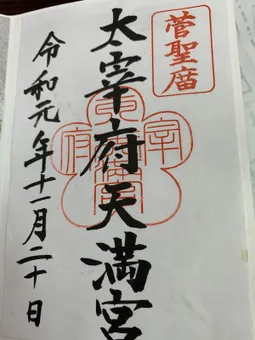 菅聖庿
太宰府天満宮
令和元年十一月二十日